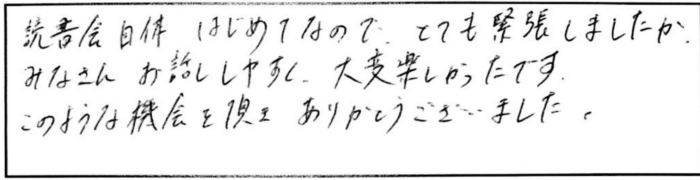 読書会自体 はじめてなので、とても緊張しましたが、
みなさん お話ししやすく、大変楽しかったです。
このような機会を頂き ありがとうございました。